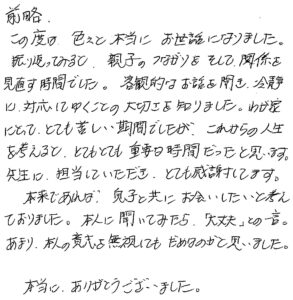 前略。
この度は、色々と本当に お世話になりました。
振り返ってみると、親子の つながりを そして、関係を
見直す時間でした。客観的なお話を聞き、冷静
に、対応してゆくことの大切さを知りました。わが家
にとって、とても苦しい期間でしたが、これからの人生
を考えると、とてもとても 重要な時間だったと思います。
先生に、担当していただき、とても感謝してます。
本来であれば、息子と共に お会いしたいと考え
ておりました。本人に聞いてみたら、「大丈夫」との一言。
あまり、本人の意志を無視しても だめなのかと思いました。
本当に、ありがとうございました。